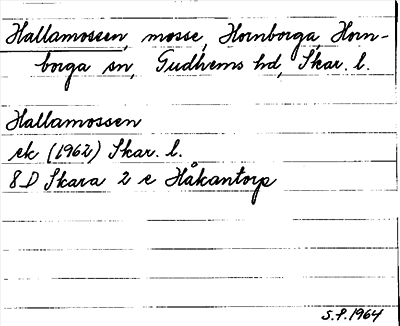 Hallamossen, mosse, Hornborga, Horn-
borga sn, Gudhems hd, Skar. l.
Hallamossen
ek (1962) Skar. l.
8D Skara 2 e Håkantorp
S.F. 1964